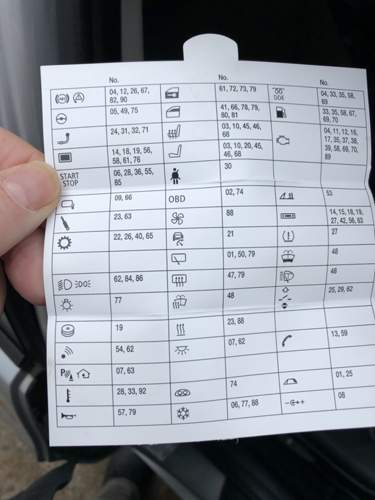 No. No. No.
04, 12, 26, 67, 61, 72, 73, 79 04, 33, 35, 58,
82, 90 DDE 69
05, 49, 75 41, 66, 78, 79, 33, 35, 58, 67,
80, 81 69, 70
24, 31, 32, 71 03, 10, 45, 46, 04, 11, 12, 16,
68 17, 35, 37, 38,
14, 18, 19, 56, 03, 10, 20, 45, 39, 58, 69, 70,
58, 61, 76 46, 68 89
START 06, 28, 36, 55, 30
STOP 85
09, 66 OBD 02, 74 53
23, 63 88 14, 15, 18, 19,
27, 42, 56, 63
22, 26, 40, 65 21 27
01, 50, 79 48
62, 84, 86 47, 79 48
77 48 25, 29, 82
19 23, 88
54, 62 07, 62 13, 59
P 07, 63
28, 33, 92 74 01, 25
57, 79 06, 77, 88 08